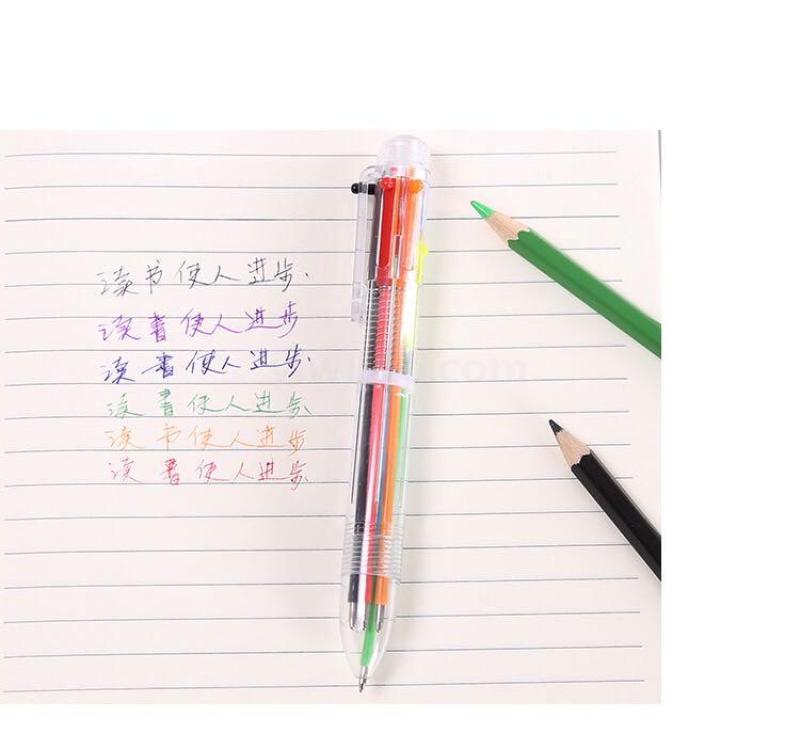 读书使人进步.
读書使人进步
读書使人进步.
读書使人进步.
读书使人进步
读書使人进步.